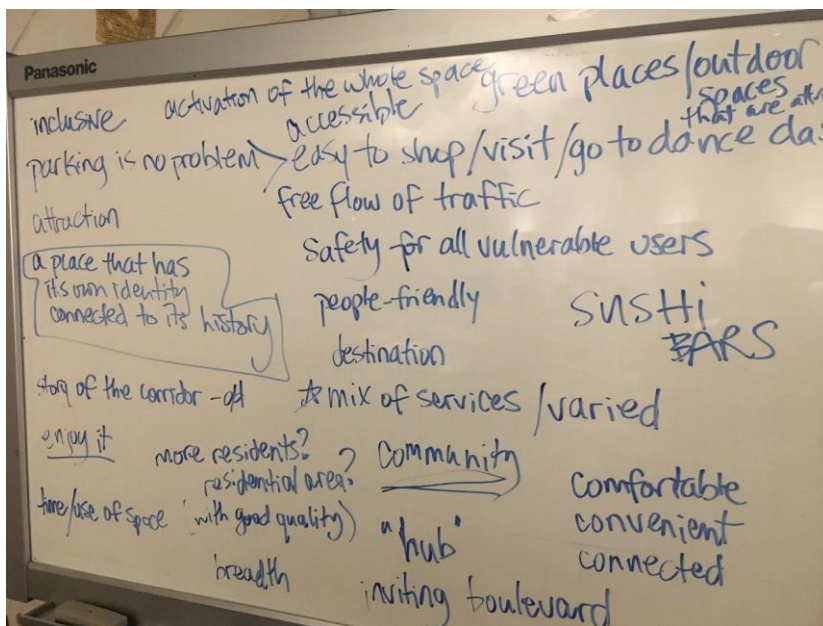 Panasonic
inclusive
activation of the whole space
accessible
green places/outdoor
spaces
that are
parking is no problem > easy to shop/visit/go to dance
free flow of traffic
attraction
safety for all vulnerable users
a place that has
its own identity
connected to its history
people-friendly
SUSHI
BARS
destination
story of the corridor -
☆ mix of services /varied
enjoy it
more residents?
residential area?
(with good quality)
community
"hub"
comfortable
convenient
connected
time/use of space
breadth
inviting boulevard